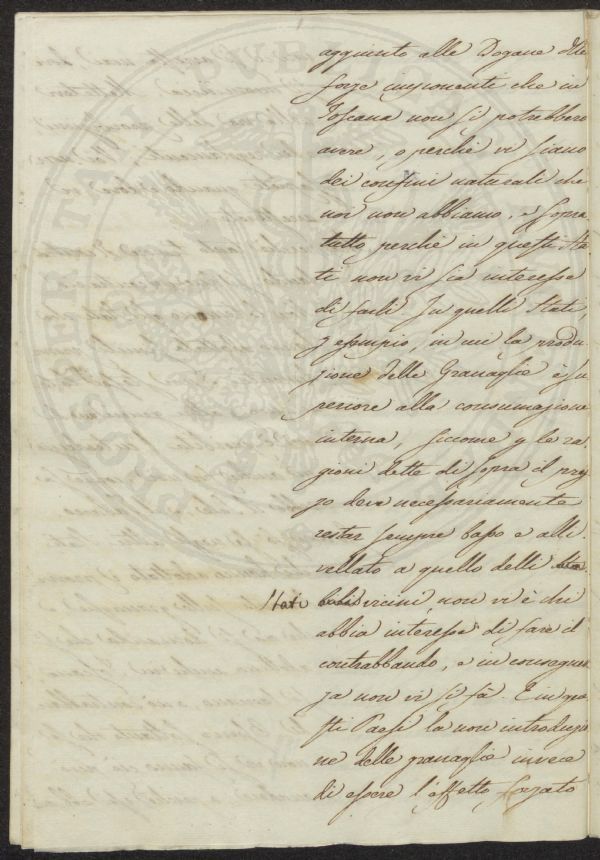 aggiunto alle Dogane delle
forze imponenti che in
Toscana non si potrebbero
avere, o perchè vi siano
dei confini naturali che
noi non abbiamo, e sopra
tutto perchè in questi Sta
ti non vi sia interesse
di farlo. In quelli Stati,
p esempio, in cui la produ
zione delle Granaglie è su
periore alla consumazione
interna, siccome p le ra
gioni dette di sopra il prez
zo deve necessariamente
restar sempre basso e alli
vellato a quello delli
Stati vicini, non vi è chi
abbia interesse di fare il
contrabbando, e in conseguen
za non vi si fà. E in que
sti Paesi la non introduzio
ne delle granaglie invece
di essere l'effetto forzato